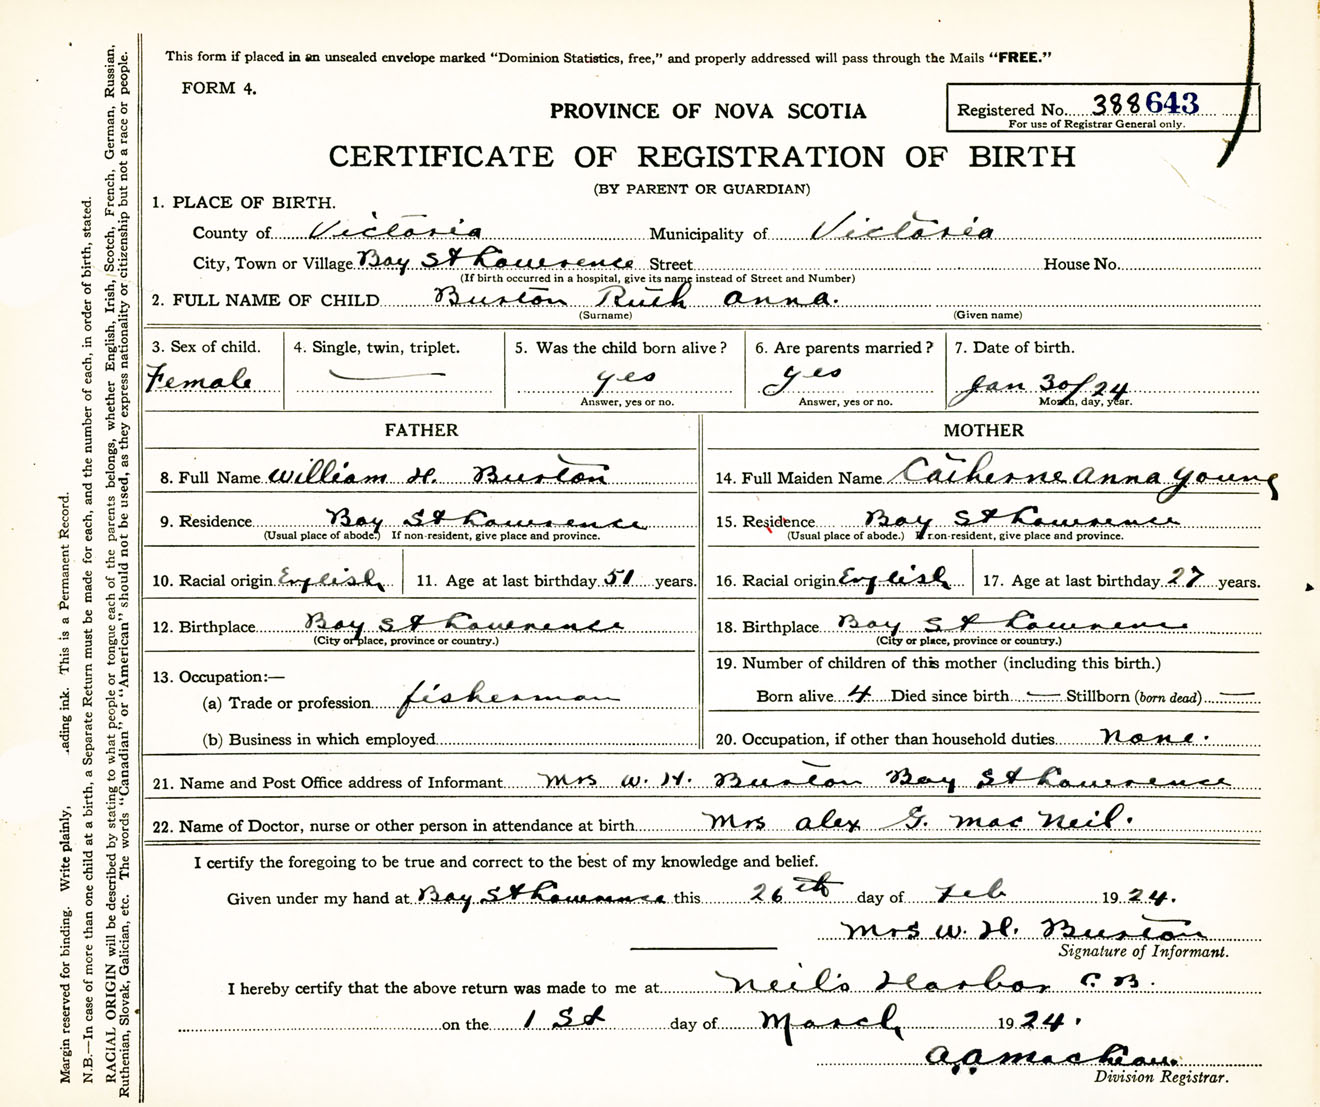 This form if placed in an unsealed envelope marked "Dominion Statistics, free," and properly addressed will pass through the Mails "FREE."
FORM 4.
PROVINCE OF NOVA SCOTIA
Registered No. 388643
For use of Registrar General only.
CERTIFICATE OF REGISTRATION OF BIRTH
(BY PARENT OR GUARDIAN)
1. PLACE OF BIRTH.
County of Victoria Municipality of Victoria
City, Town or Village Bay St Lawrence Street House No.
(If birth occurred in a hospital, give its name instead of Street and Number)
2. FULL NAME OF CHILD Burton Ruth Anna.
(Surname) (Given name)
3. Sex of child. 4. Single, twin, triplet. 5. Was the child born alive? 6. Are parents married? 7. Date of birth.
Female — yes yes Jan 30/24
Answer, yes or no. Answer, yes or no. Month, day, year.
FATHER MOTHER
8. Full Name William H. Burton 14. Full Maiden Name Catherne Anna Young
9. Residence Bay St Lawrence 15. Residence Bay St Lawrence
(Usual place of abode.) If non-resident, give place and province. (Usual place of abode.) If non-resident, give place and province.
10. Racial origin English 11. Age at last birthday 51 years. 16. Racial origin English 17. Age at last birthday 27 years.
12. Birthplace Bay St Lawrence 18. Birthplace Bay St Lawrence
(City or place, province or country.) (City or place, province or country.)
13. Occupation:— 19. Number of children of this mother (including this birth.)
(a) Trade or profession fisherman Born alive 4 Died since birth — Stillborn (born dead) —
(b) Business in which employed 20. Occupation, if other than household duties None.
21. Name and Post Office address of Informant Mrs W. H. Burton Bay St Lawrence
22. Name of Doctor, nurse or other person in attendance at birth Mrs Alex G. Mac Neil.
I certify the foregoing to be true and correct to the best of my knowledge and belief.
Given under my hand at Bay St Lawrence this 26th day of Feb 1924.
Mrs W. H. Burton
Signature of Informant.
I hereby certify that the above return was made to me at Neil's Harbor C. B.
on the 1 St day of March 1924.
A. A. MacLean.
Division Registrar.
Margin reserved for binding. Write plainly, ading ink. This is a Permanent Record.
N.B.—In case of more than one child at a birth, a Separate Return must be made for each, and the number of each, in order of birth, stated.
RACIAL ORIGIN will be described by stating to what people or tongue each of the parents belongs, whether English, Irish, Scotch, French, German, Russian,
Ruthenian, Slovak, Galician, etc. The words "Canadian" or "American" should not be used, as they express nationality or citizenship but not a race or people.